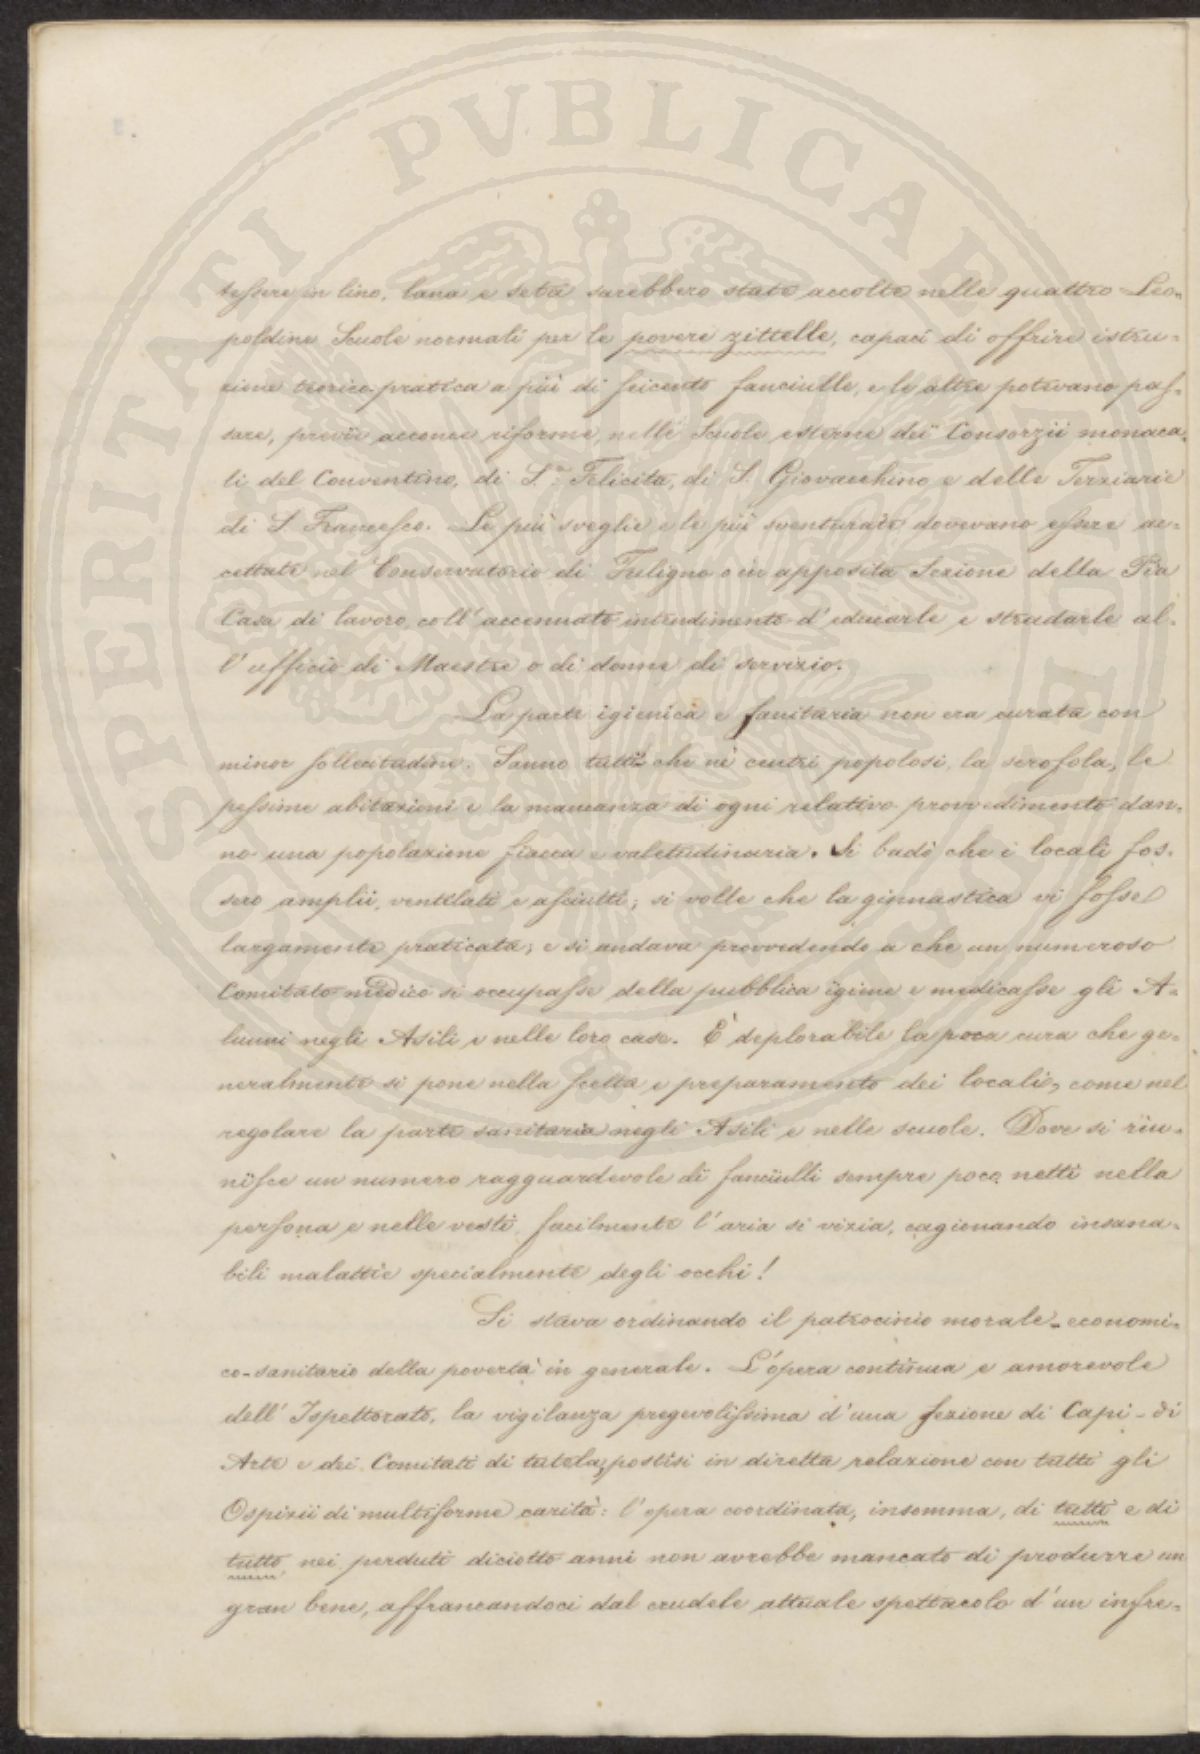 PROSPERITATI PUBLICAE AUGENDAE
tessere in lino, lana e seta sarebbero state accolte nelle quattro Leo-
poldine Scuole normali per le povere zittelle, capaci di offrire istru-
zione teorico-pratica a più di seicento fanciulle, e le altre potevano pas-
sare, previe acconce riforme, nelle Scuole esterne dei Consorzii monaca-
li del Conventino, di S.ª Felicita, di S. Giovacchino e delle Terziarie
di S. Francesco. Le più sveglie e le più sventurate dovevano essere ac-
cettate nel Conservatorio di Fuligno o in apposita Sezione della Pia
Casa di lavoro, coll'accennato intendimento d'educarle e strudarle al-
l'ufficio di Maestre o di donne di servizio.
La parte igienica e sanitaria non era curata con
minor sollecitudine. Sanno tutti che né centri popolosi, la scrofola, le
pessime abitazioni e la mancanza di ogni relativo provvedimento dan-
no una popolazione fiacca e valetudinaria. Si badò che i locali fos-
sero amplii, ventilati e asciutti; si volle che la ginnastica vi fosse
largamente praticata; e si andava provvedendo a che un numeroso
Comitato medico si occupasse della pubblica igiene e medicasse gli A-
lunni negli Asili e nelle loro case. È deplorabile la poca cura che ge-
neralmente si pone nella scelta e preparamento dei locali, come nel
regolare la parte sanitaria negli Asili e nelle scuole. Dove si riu-
nisce un numero ragguardevole di fanciulli sempre poco netti nella
persona e nelle vesti, facilmente l'aria si vizia, cagionando insana-
bili malattie specialmente degli occhi!
Si stava ordinando il patrocinio morale-economi-
co-sanitario della povertà in generale. L'opera continua e amorevole
dell'Ispettorato, la vigilanza pregevolissima d'una sezione di Capi-di
Arte e dei Comitati di tutela, postisi in diretta relazione con tutti gli
Ospizii di multiforme carità: l'opera coordinata, insomma, di tutti e di
tutto, nei perduti diciotto anni non avrebbe mancato di produrre un
gran bene, affrancandoci dal crudele attuale spettacolo d'un infre-